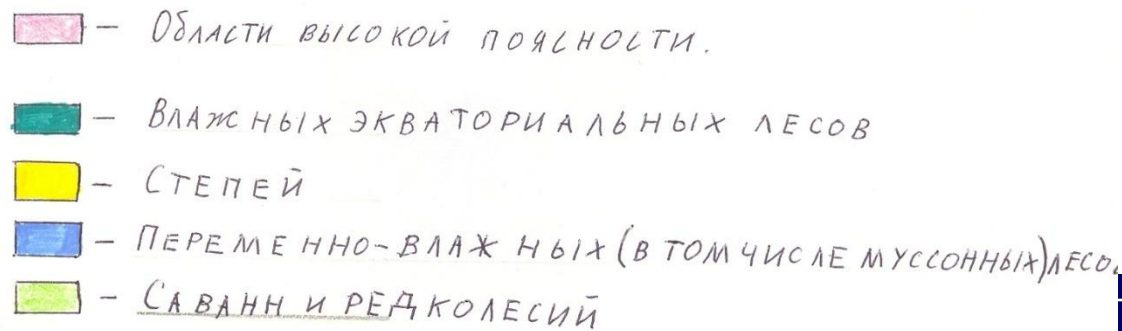 – Области высокой поясности.
– Влажных экваториальных лесов
– Степей
– Переменно-влажных (в том числе муссонных) лесо
– Саванн и редколесий